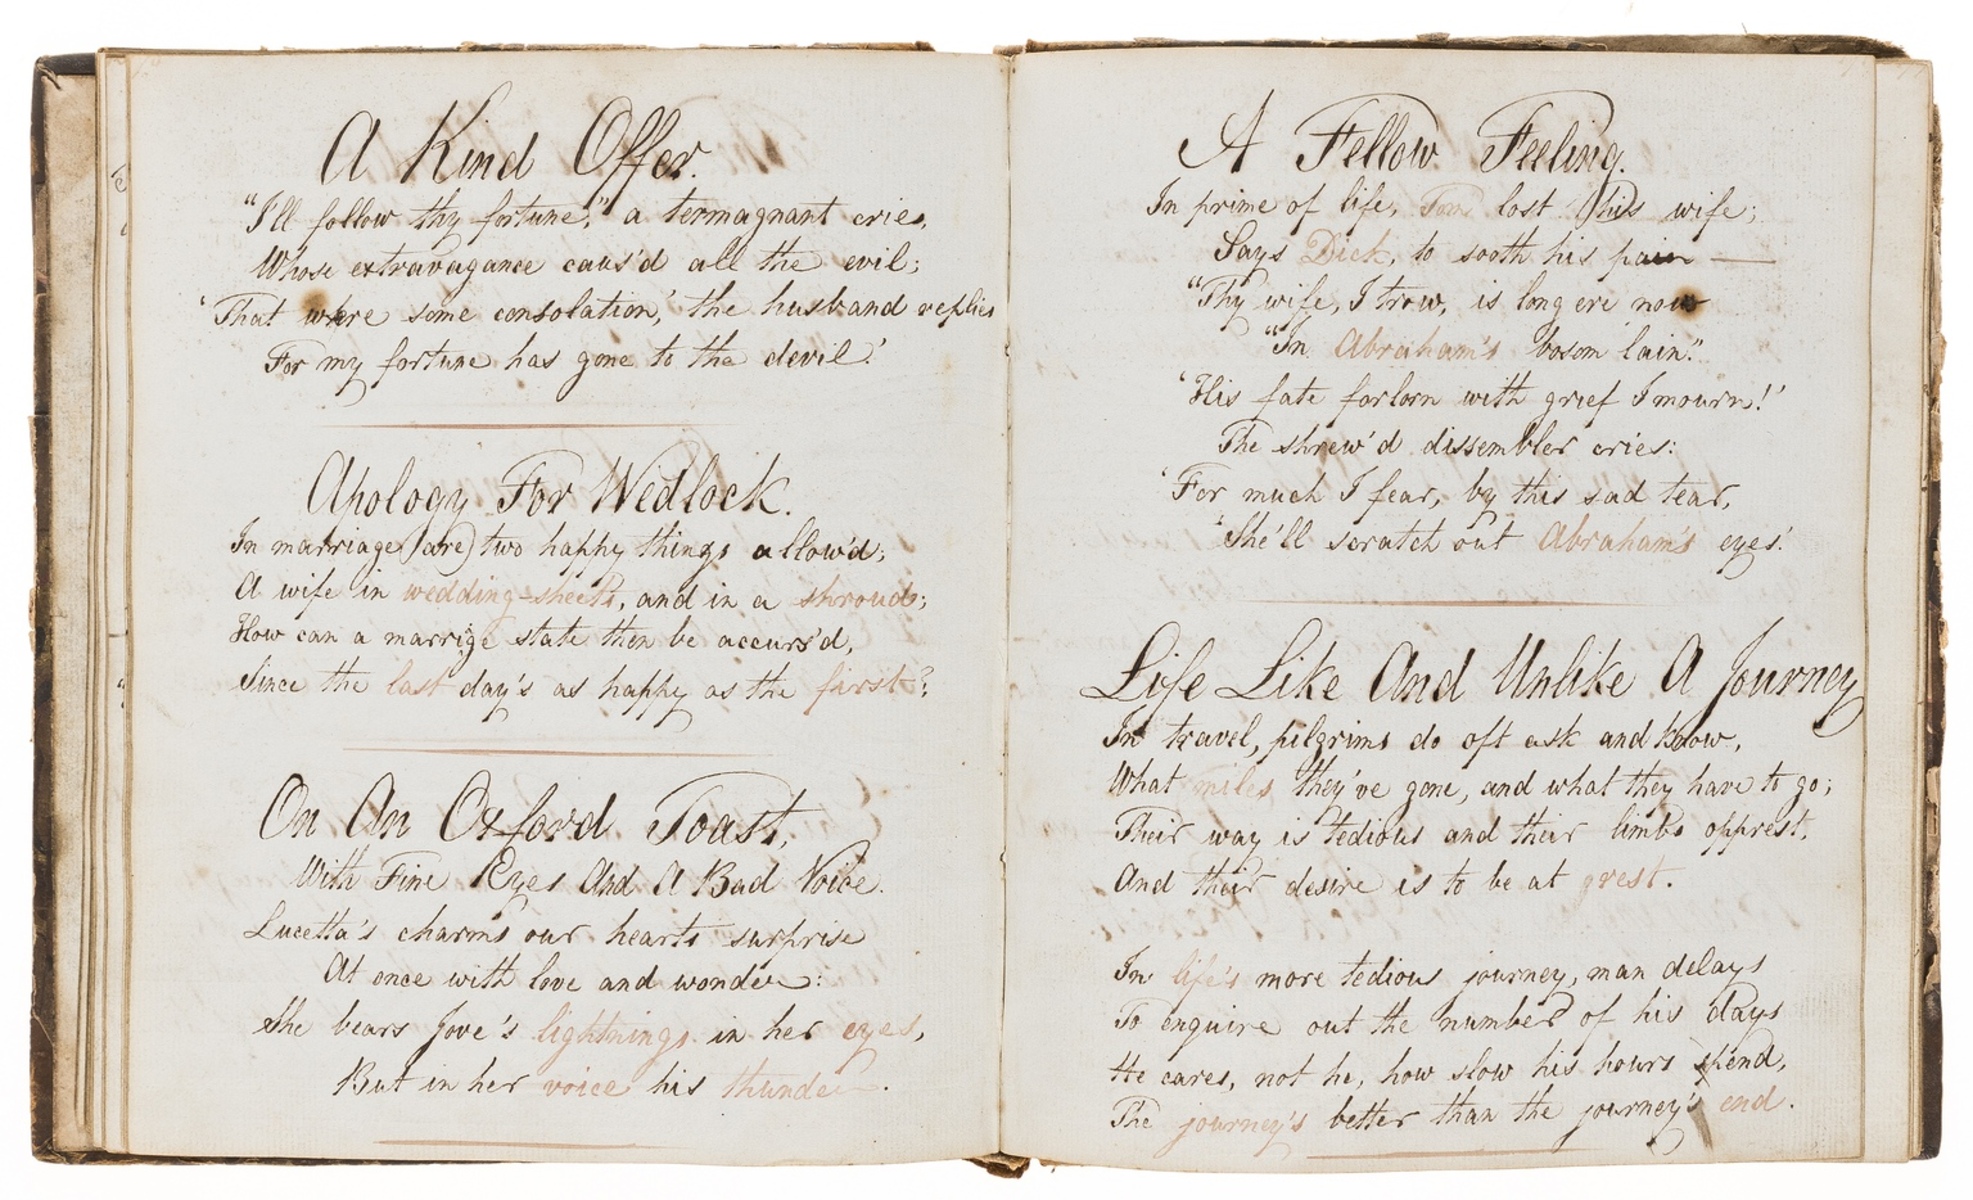 A Kind Offer.
"I'll follow thy fortune," a termagnant cries,
Whose extravagance caus'd all the evil;
'That were some consolation,' the husband replies
For my fortune has gone to the devil.'
Apology For Wedlock.
In marriage (are) two happy things allow'd;
A wife in wedding-sheets, and in a shroud;
How can a marrige state then be accurs'd,
Since the last day's as happy as the first?
On An Oxford Toast,
With Fine Eyes And A Bad Voice.
Lucetta's charms our hearts surprise
At once with love and wonder:
She bears Jove's lightnings in her eyes,
But in her voice his thunder.
A Fellow Feeling.
In prime of life, Tom lost (his wife;
Says Dick, to sooth his pain —
"Thy wife, I trow, is long ere now
"In Abraham's bosom lain."
'His fate forlorn with grief I mourn!'
The shrew'd dissembler cries:
'For much I fear, by this sad tear,
'She'll scratch out Abraham's eyes.'
Life Like And Unlike A Journey
In travel, pilgrims do oft ask and know,
What miles they've gone, and what they have to go;
Their way is tedious and their limbs opprest,
And their desire is to be at rest.
In life's more tedious journey, man delays
To enquire out the number of his days
He cares, not he, how slow his hours spend,
The journey's better than the journey's end.